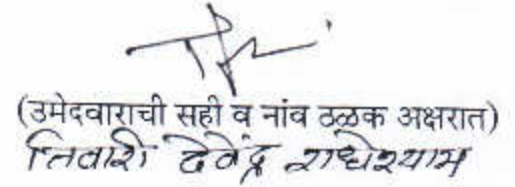 (उमेदवाराची सही व नांव ठळक अक्षरात)
तिवारी देवेंद्र राधेश्याम